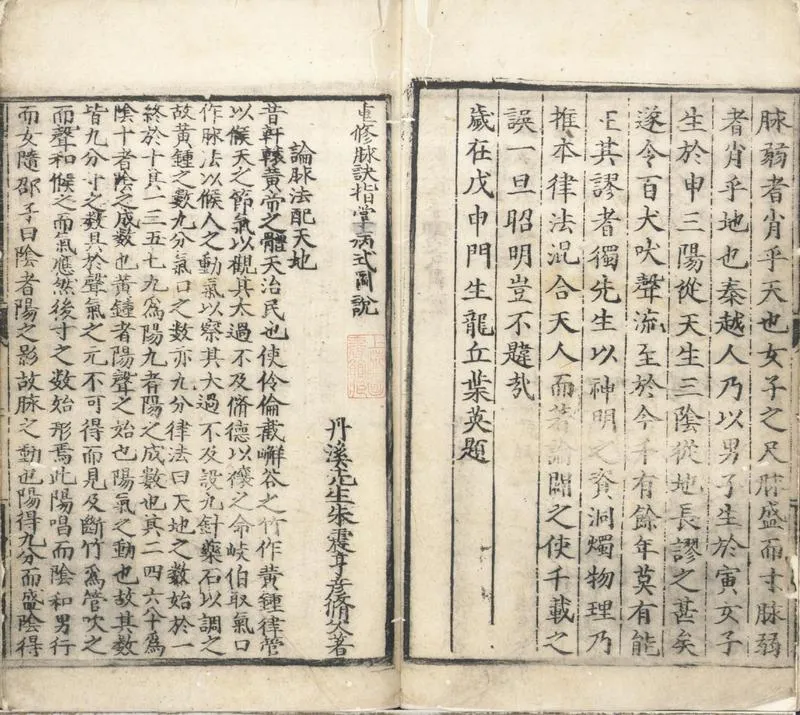 脉弱者肖乎天也女子之尺脉盛而寸脉弱
者肖乎地也秦越人乃以男子生於寅女子
生於申三陽從天生三陰從地長謬之甚矣
遂令百犬吠聲流至於今千有餘年莫有能
正其謬者獨先生以神明之資洞燭物理乃
推本律法混合天人而著論闢之使千載之
誤一旦昭明豈不韙哉
歲在戊申門生龍丘葉英題
重修脉訣指掌病式圖說
丹溪先生朱震亨彥脩父著
論脉法配天地
昔軒轅黃帝之體天治民也使伶倫截嶰谷之竹作黃鍾律管
以候天之節氣以觀其太過不及脩德以禳之命岐伯取氣口
作脉法以候人之動氣以察其太過不及設九針藥石以調之
故黃鍾之數九分氣口之數亦九分律法曰天地之數始於一
終於十其一三五七九爲陽九者陽之成數也其二四六八十爲
陰十者陰之成數也黃鍾者陽聲之始也陽氣之動也故其數
皆九分寸之數具於聲氣之元不可得而見及斷竹爲管吹之
而聲和候之而氣應然後寸之數始形焉此陽唱而陰和男行
而女隨邵子曰陰者陽之影故脉之動也陽得九分而盛陰得